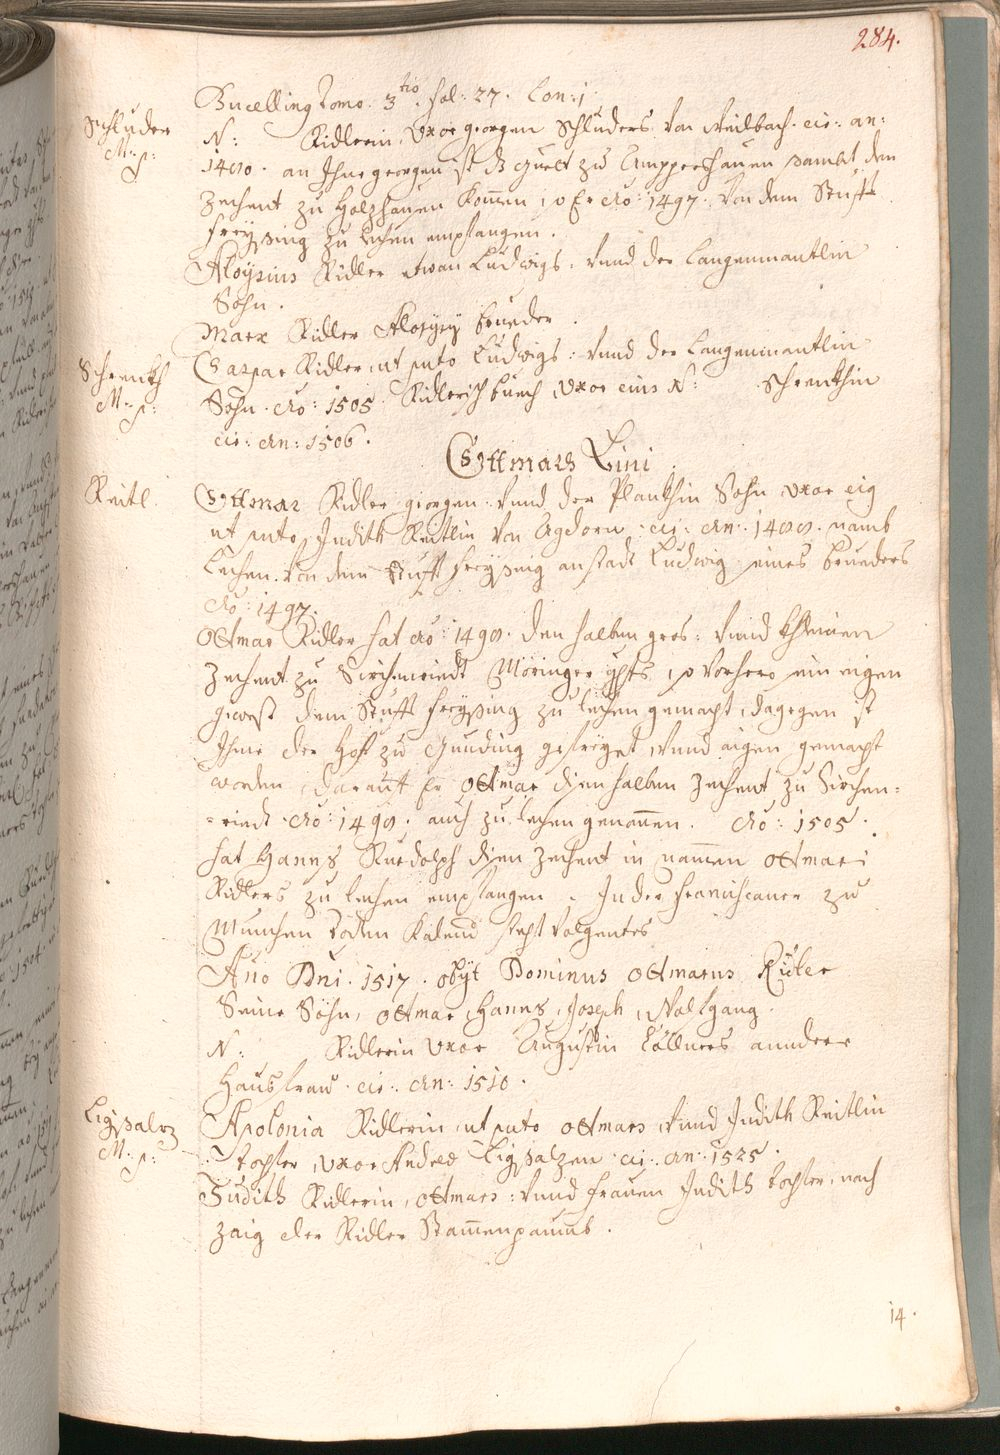 284.
Bucelling Tomo. 3tio. fol: 27. Con: 1.
Schluder
M: p:
N: Ridlerin, Vxor georgen Schluders von Weilbach. cir: an:
1480. an Ihne georgen ist dz guett zu Ampperhausen sambt dem
Zechent zu Holzhausen komen, so Er Ao: 1497. von dem Stufft
freysing zu Lechen empfangen.
Aloysius Ridler etwan Ludwigs, vnnd der Langenmantlin
Sohn.
Marx Ridler Aloysij brueder.
Schrenkh
M: p:
Caspar Ridler, ut puto Ludwigs: vnnd der Langenmantlin
Sohn. Ao: 1505. Ridlerisch buech, vxor eius N: Schrenkhin
cir: An: 1506.
Ottmars Lini.
Reitl.
Ottmar Ridler georgen: vnnd der Plankhin Sohn vxor eig
ut puto, Judith Reitlin von Agdorn. cir: An: 1488. namb
Lechen von dem Stufft freysing anstadt Ludwig seines brueders
Ao: 1497.
Ottmar Ridler hat Ao: 1498. den halben gros: vnnd khleinen
Zechent zu Kirchenriedt Möringer ghts, so vorhero sein eigen
gewest dem Stufft freysing zu lechen gemacht, dagegen ist
Ihme der Hoff zu Gunding gefreyet, vnnd aigen gemacht
worden, darauf Er Ottmar disen halben Zechent zu Kirchen=
=riedt. Ao: 1498. auch zu lechen genomen. Ao: 1505.
hat Hanns Ruedolph disen Zechent in namen Ottmari
Ridlers zu lechen empfangen. In der franciscaner zu
München Todten Kalend steht volgentes
Ano Dni. 1517. obijt Dominus Ottmarus Ridler
Seine Söhn, Ottmar, Hanns, Joseph, Wolfgang.
N: Ridlerin Vxor Augustin Löllners anndere
Hausfraw. cir: An: 1510.
Ligsalz
M: p:
Apolonia Ridlerin, ut puto Ottmars, vnnd Judith Reitlin
tochter, vxor Andree Ligsalzen. cir: An: 1525.
Judith Ridlerin, Ottmars: vnnd frauen Judith tochter, nach
zaig der Ridler Stamenpaumb.
14.